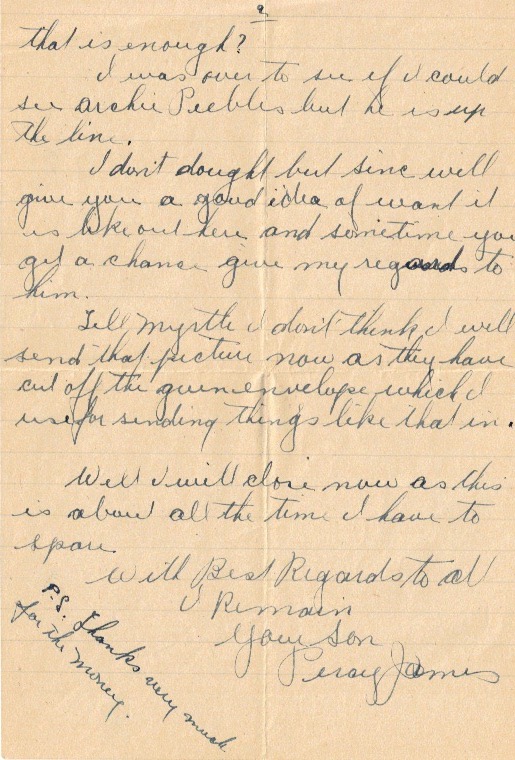 2
that is enough?
I was over to see if I could
see Archie Peebles but he is up
the line.
I don't dought but sinc will
give you a good idea of want it
is like out here and sometime you
get a chance give my regards to
him.
Tell Myrtle I don't think I will
send that picture now as they have
cut off the green envelope which I
use for sending things like that in.
Well I will close now as this
is about all the time I have to
spare
With Best Regards to all
I Remain
Your Son
Percy James
P.S. Thanks very much
for the money.